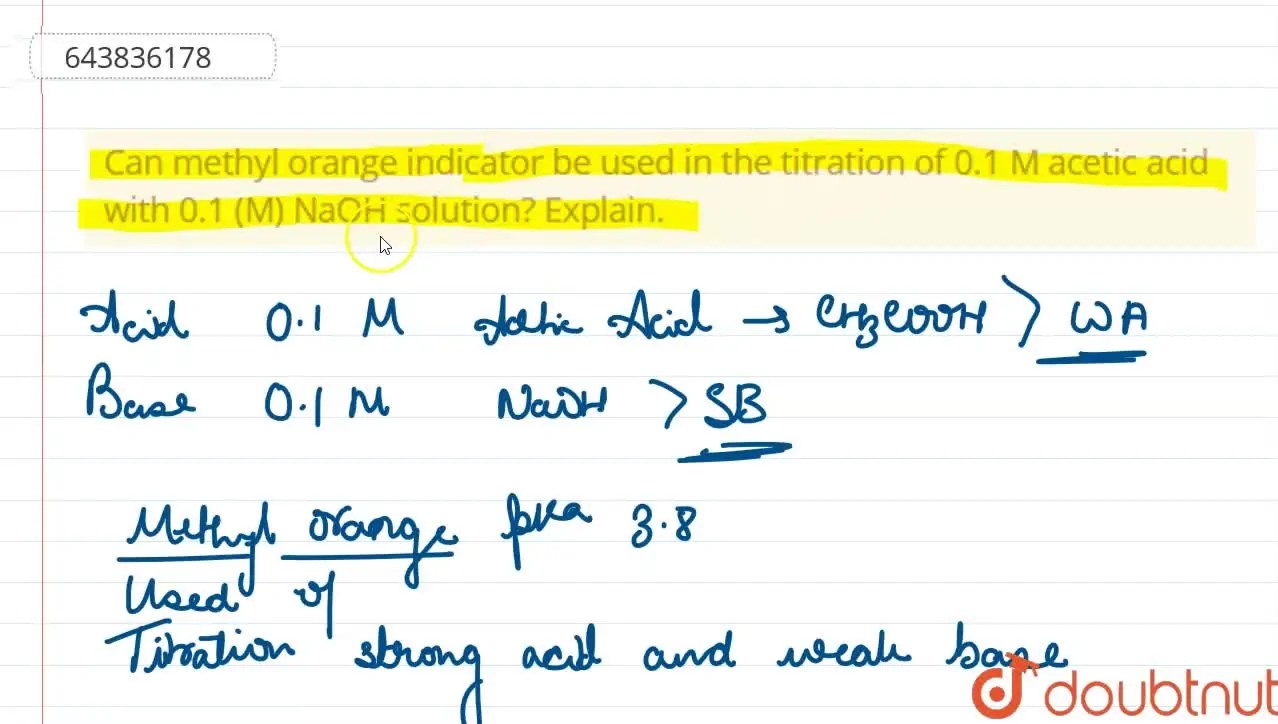 643836178
Can methyl orange indicator be used in the titration of 0.1 M acetic acid
with 0.1 (M) NaOH solution? Explain.
Acid 0.1 M Acetic Acid → CH3COOH > WA
Base 0.1 M NaOH > SB
Methyl orange pka 3.8
Used
Titration strong acid and weak base
doubtnut